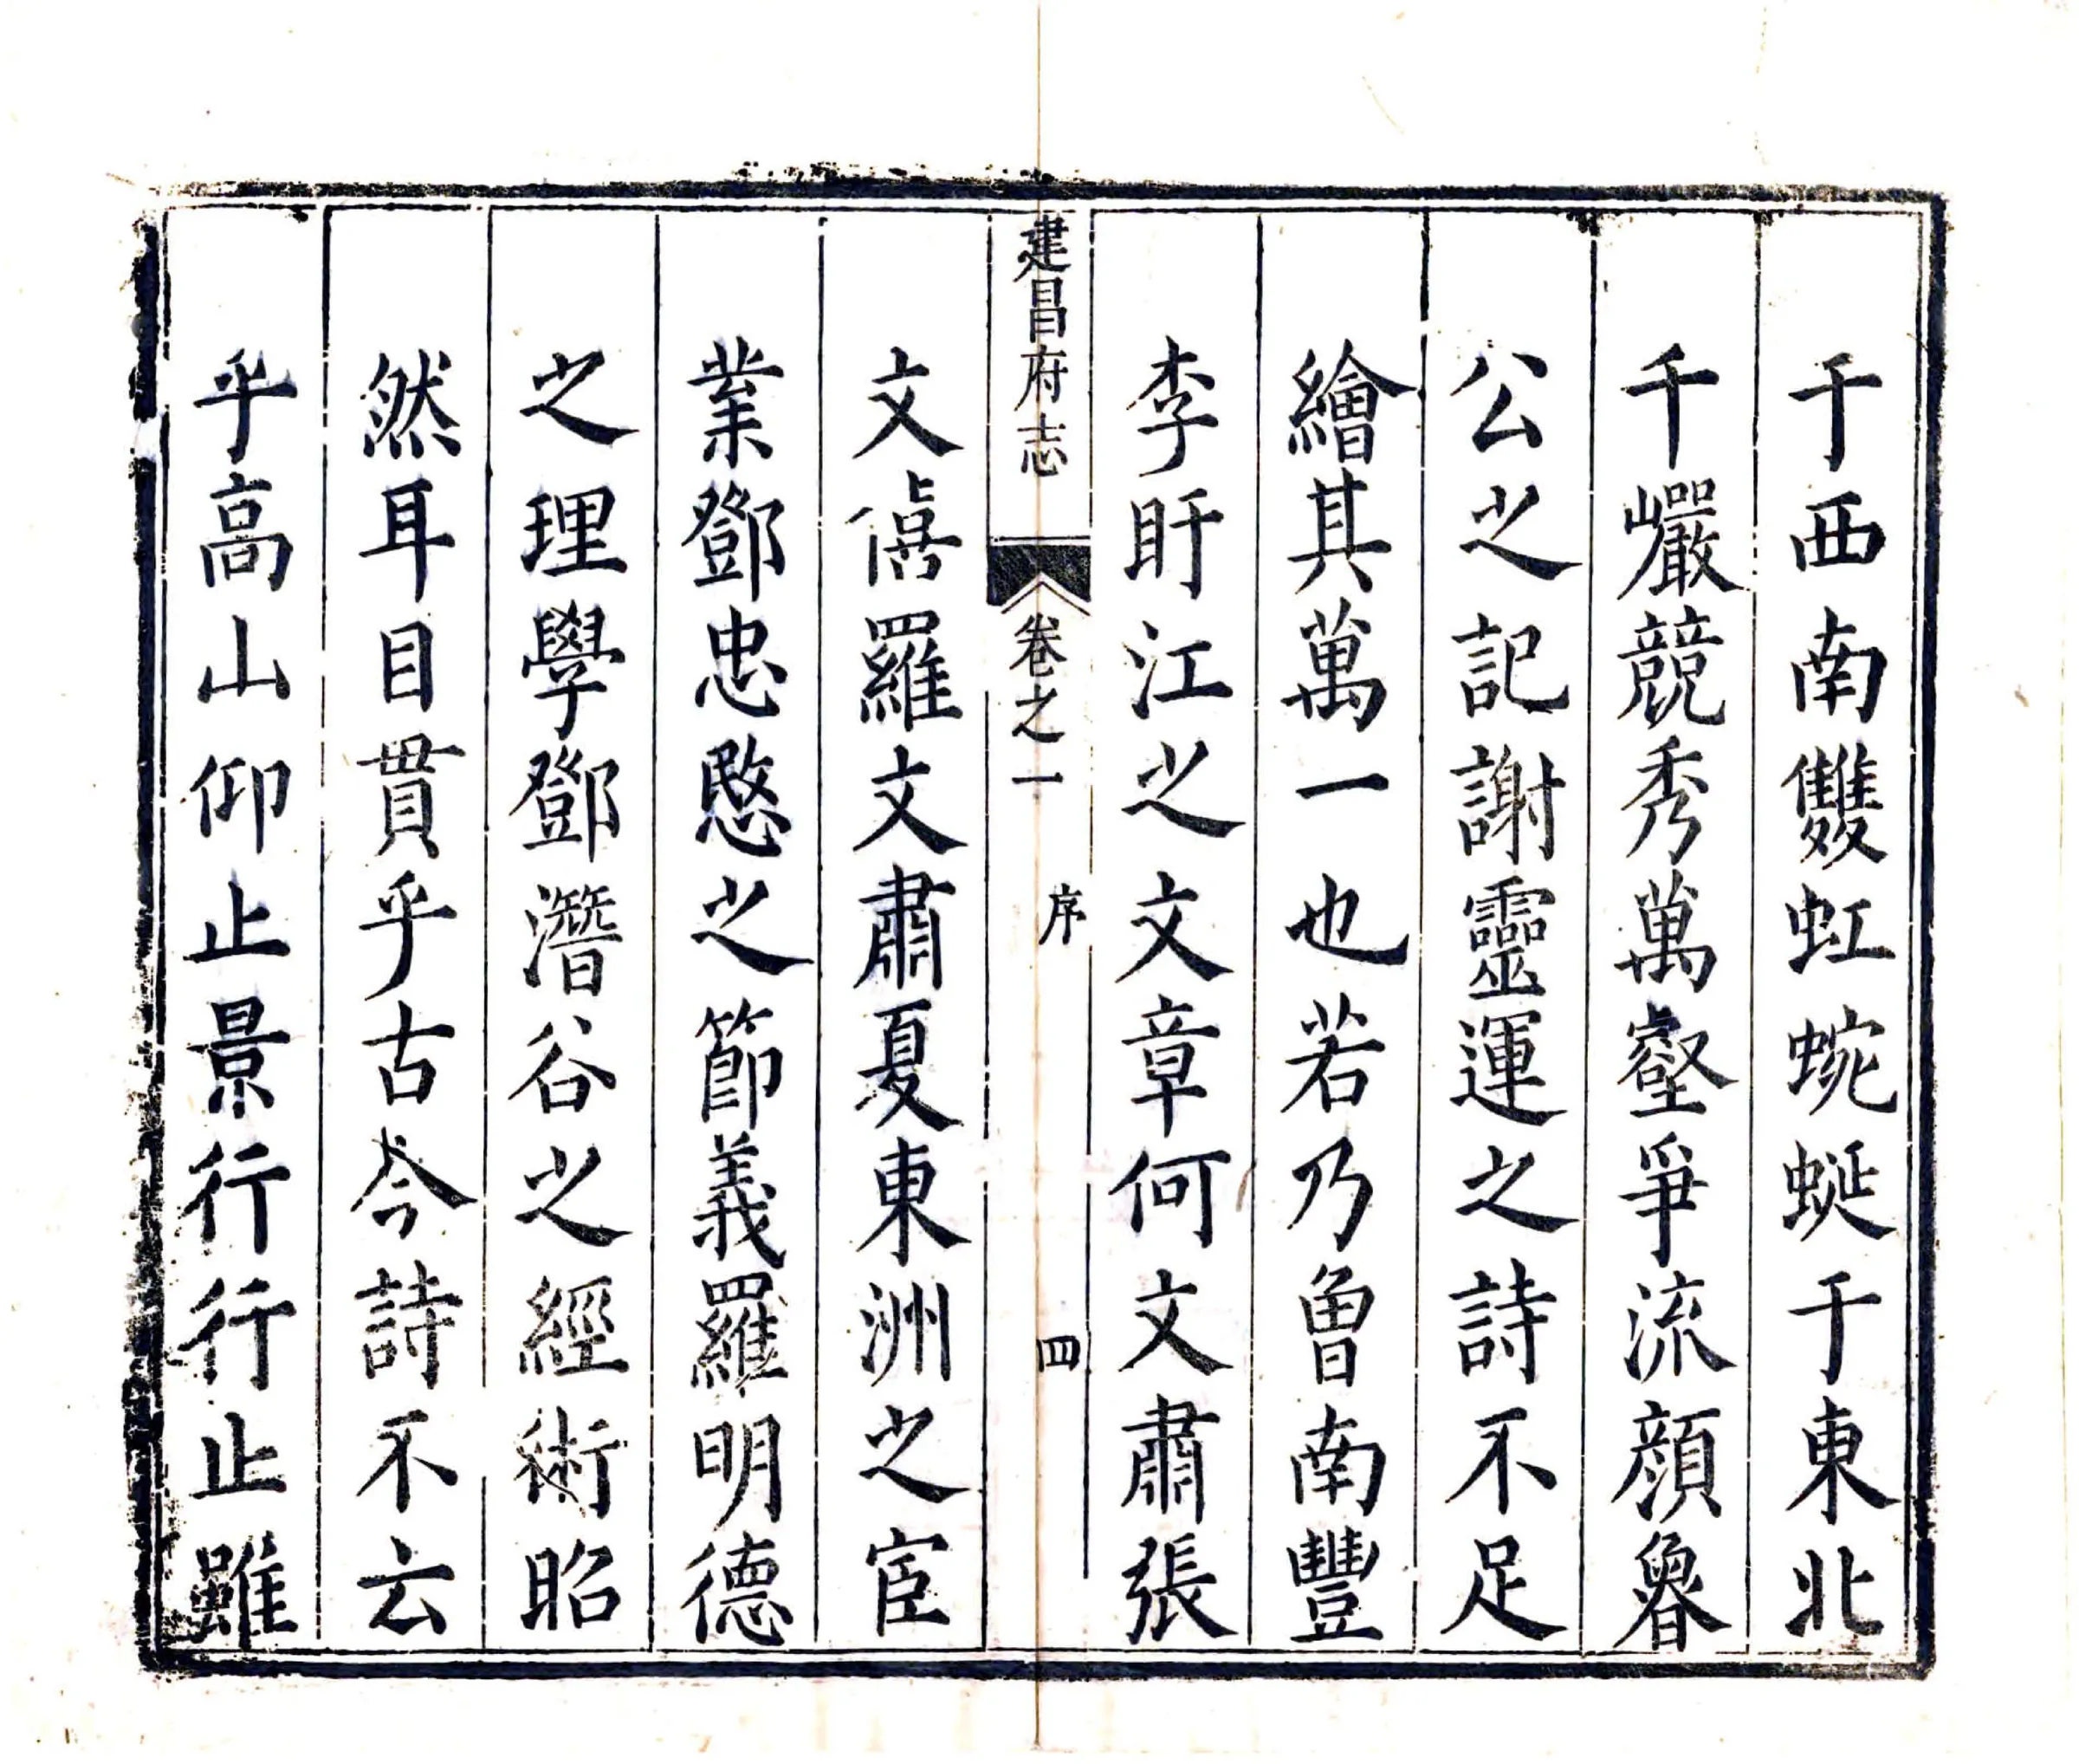 于西南雙虹蜿蜒于東北
千巗競秀萬壑爭流顔魯
公之記謝靈運之詩不足
繪其萬一也若乃曾南豐
李盱江之文章何文肅張
建昌府志 卷之一 序 四
文僖羅文肅夏東洲之宦
業鄧忠愍之節義羅明德
之理學鄧潛谷之經術昭
然耳目貫乎古今詩不云
乎高山仰止景行行止雖